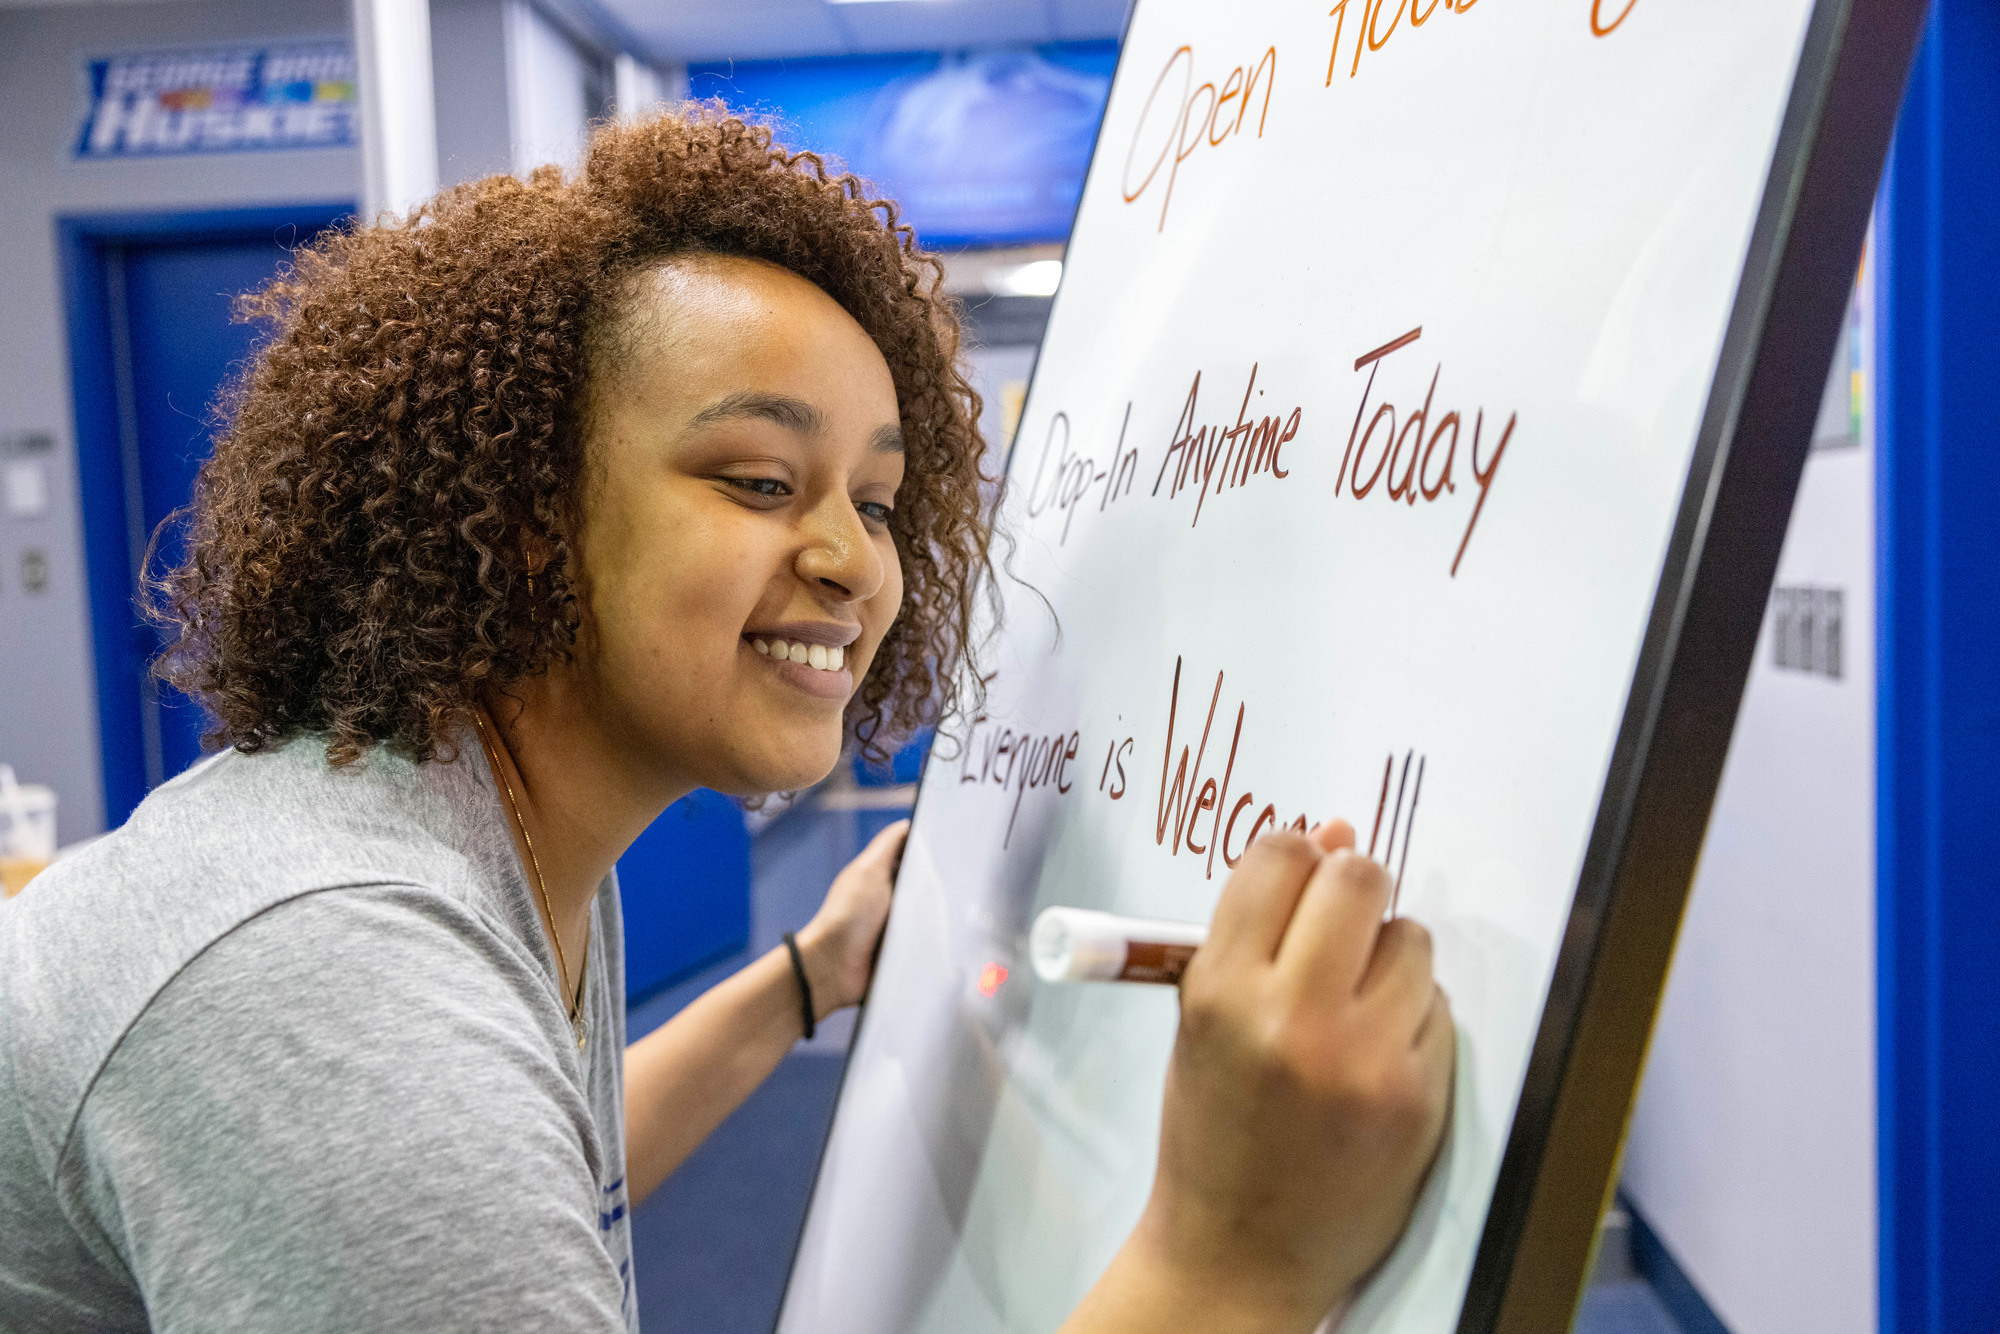 GEORGE BROWN
HUSKIES
Open House
Drop-In Anytime Today
Everyone is Welcome!!!